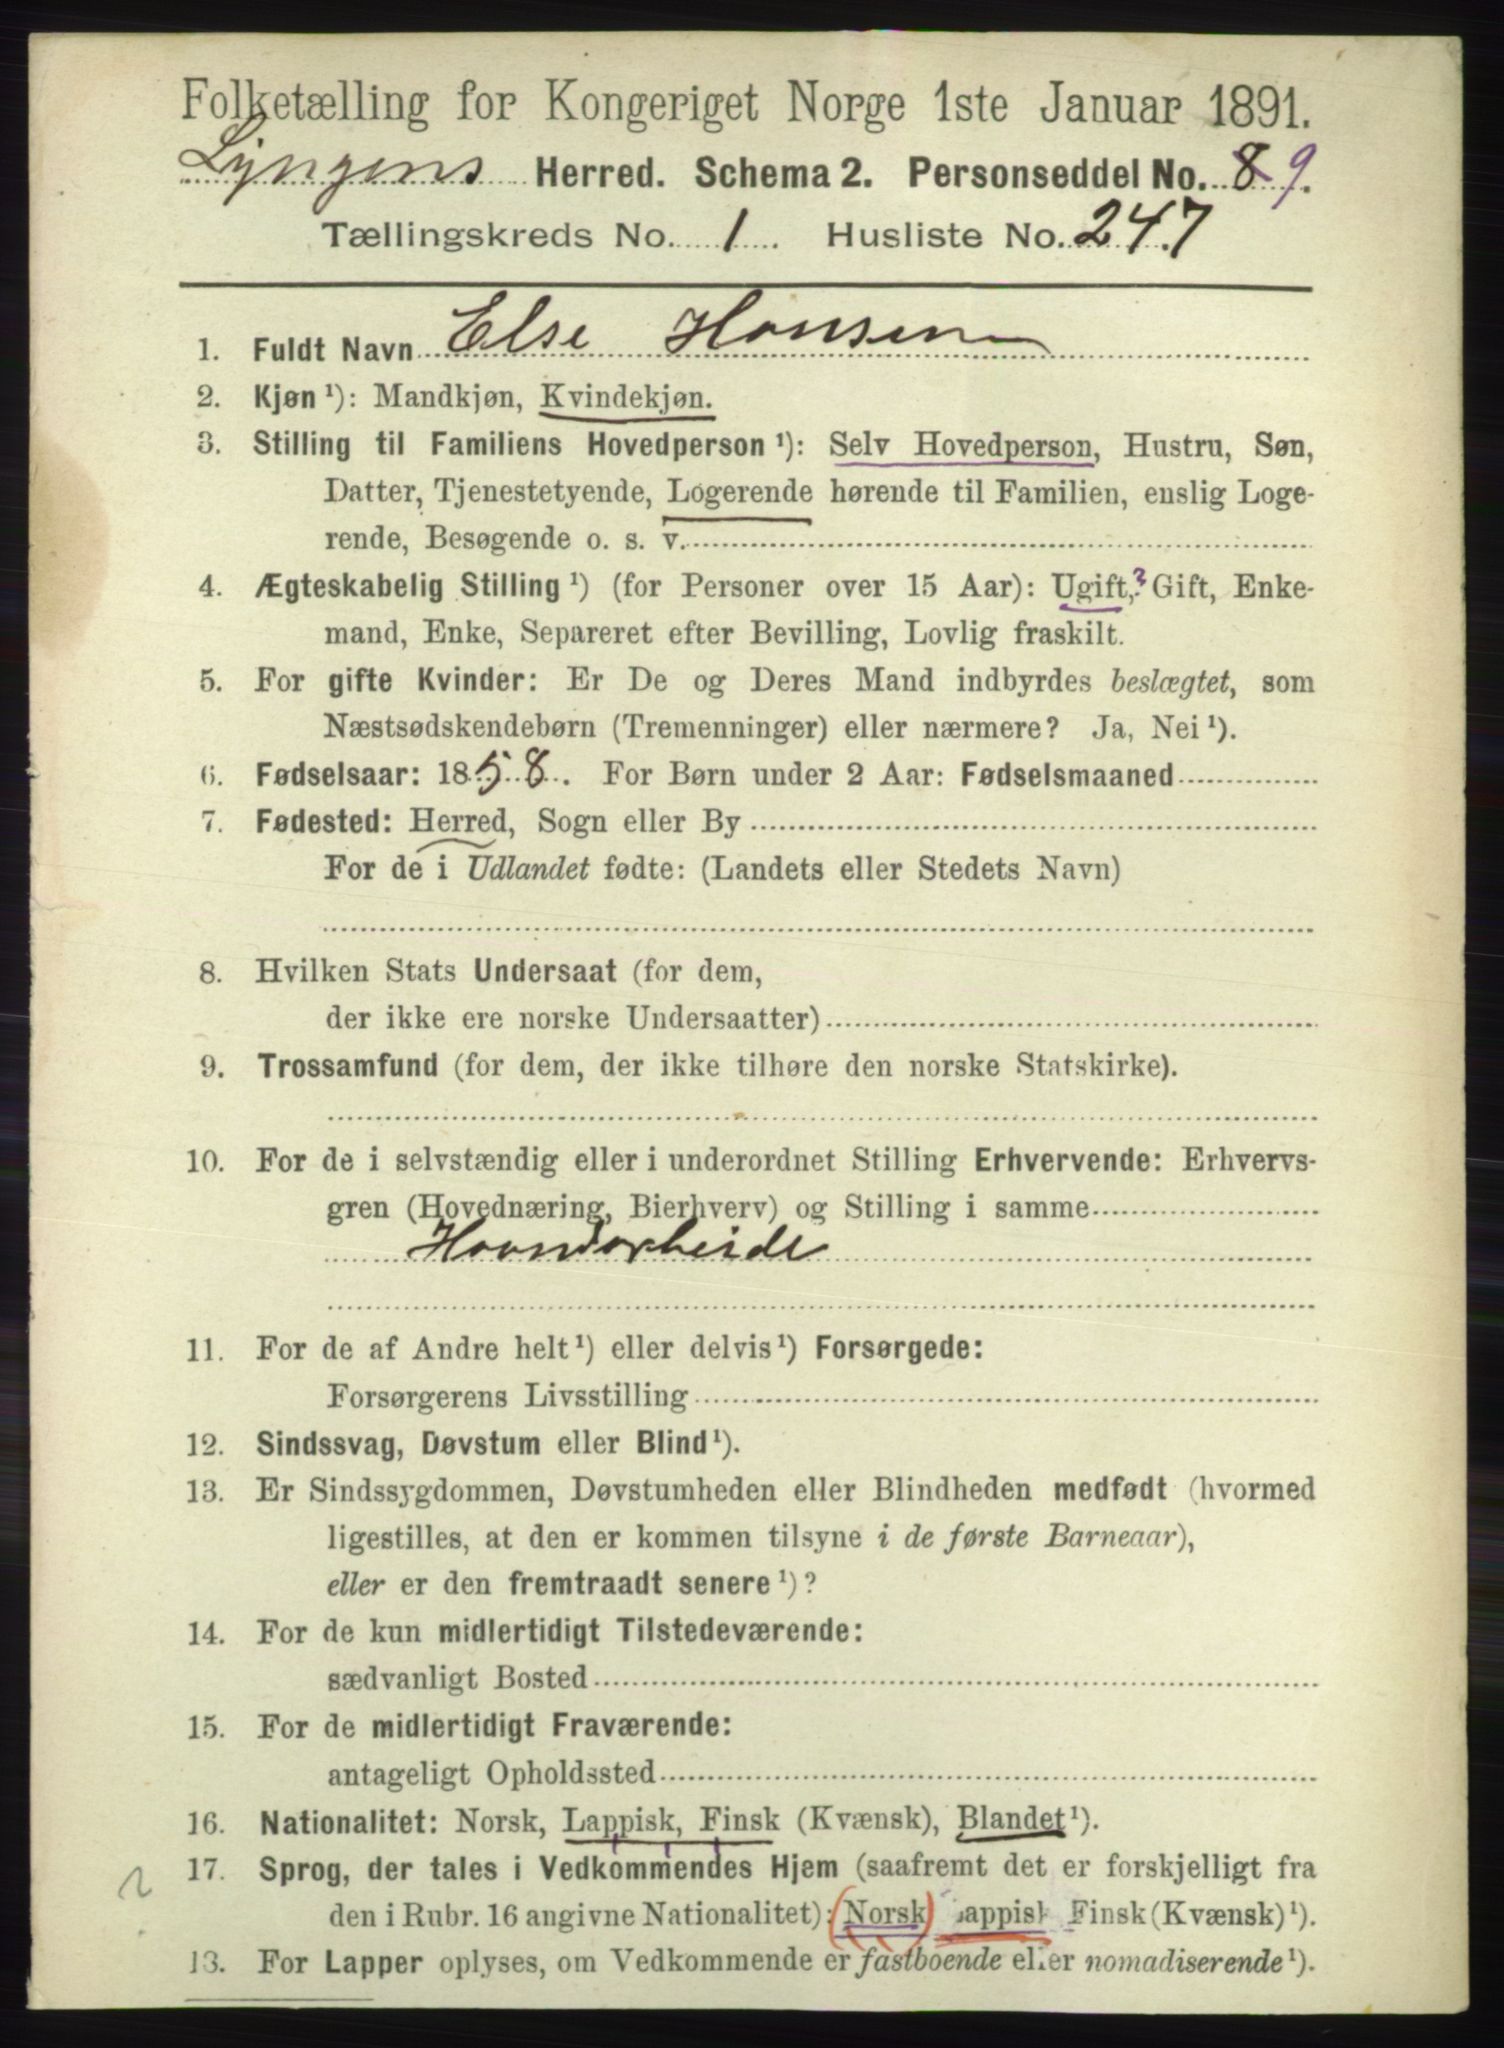 Folketælling for Kongeriget Norge 1ste Januar 1891.
Lyngens Herred. Schema 2. Personseddel No. 8 9.
Tællingskreds No. 1. Husliste No. 247
1. Fuldt Navn Else Hansen
2. Kjøn ¹): Mandkjøn, Kvindekjøn.
3. Stilling til Familiens Hovedperson ¹): Selv Hovedperson, Hustru, Søn,
Datter, Tjenestetyende, Logerende hørende til Familien, enslig Loge-
rende, Besøgende o. s. v.
4. Ægteskabelig Stilling ¹) (for Personer over 15 Aar): Ugift,? Gift, Enke-
mand, Enke, Separeret efter Bevilling, Lovlig fraskilt.
5. For gifte Kvinder: Er De og Deres Mand indbyrdes beslægtet, som
Næstsødskendebørn (Tremenninger) eller nærmere? Ja, Nei ¹).
6. Fødselsaar: 1858. For Børn under 2 Aar: Fødselsmaaned
7. Fødested: Herred, Sogn eller By
For de i Udlandet fødte: (Landets eller Stedets Navn)
8. Hvilken Stats Undersaat (for dem,
der ikke ere norske Undersaatter)
9. Trossamfund (for dem, der ikke tilhøre den norske Statskirke).
10. For de i selvstændig eller i underordnet Stilling Erhvervende: Erhvervs-
gren (Hovednæring, Bierhverv) og Stilling i samme
Haandarbeide
11. For de af Andre helt ¹) eller delvis ¹) Forsørgede:
Forsørgerens Livsstilling
12. Sindssvag, Døvstum eller Blind ¹).
13. Er Sindssygdommen, Døvstumheden eller Blindheden medfødt (hvormed
ligestilles, at den er kommen tilsyne i de første Barneaar),
eller er den fremtraadt senere ¹)?
14. For de kun midlertidigt Tilstedeværende:
sædvanligt Bosted
15. For de midlertidigt Fraværende:
antageligt Opholdssted
16. Nationalitet: Norsk, Lappisk, Finsk (Kvænsk), Blandet ¹).
2 17. Sprog, der tales i Vedkommendes Hjem (saafremt det er forskjelligt fra
den i Rubr. 16 angivne Nationalitet): (Norsk) Lappisk Finsk (Kvænsk) ¹).
13. For Lapper oplyses, om Vedkommende er fastboende eller nomadiserende ¹).